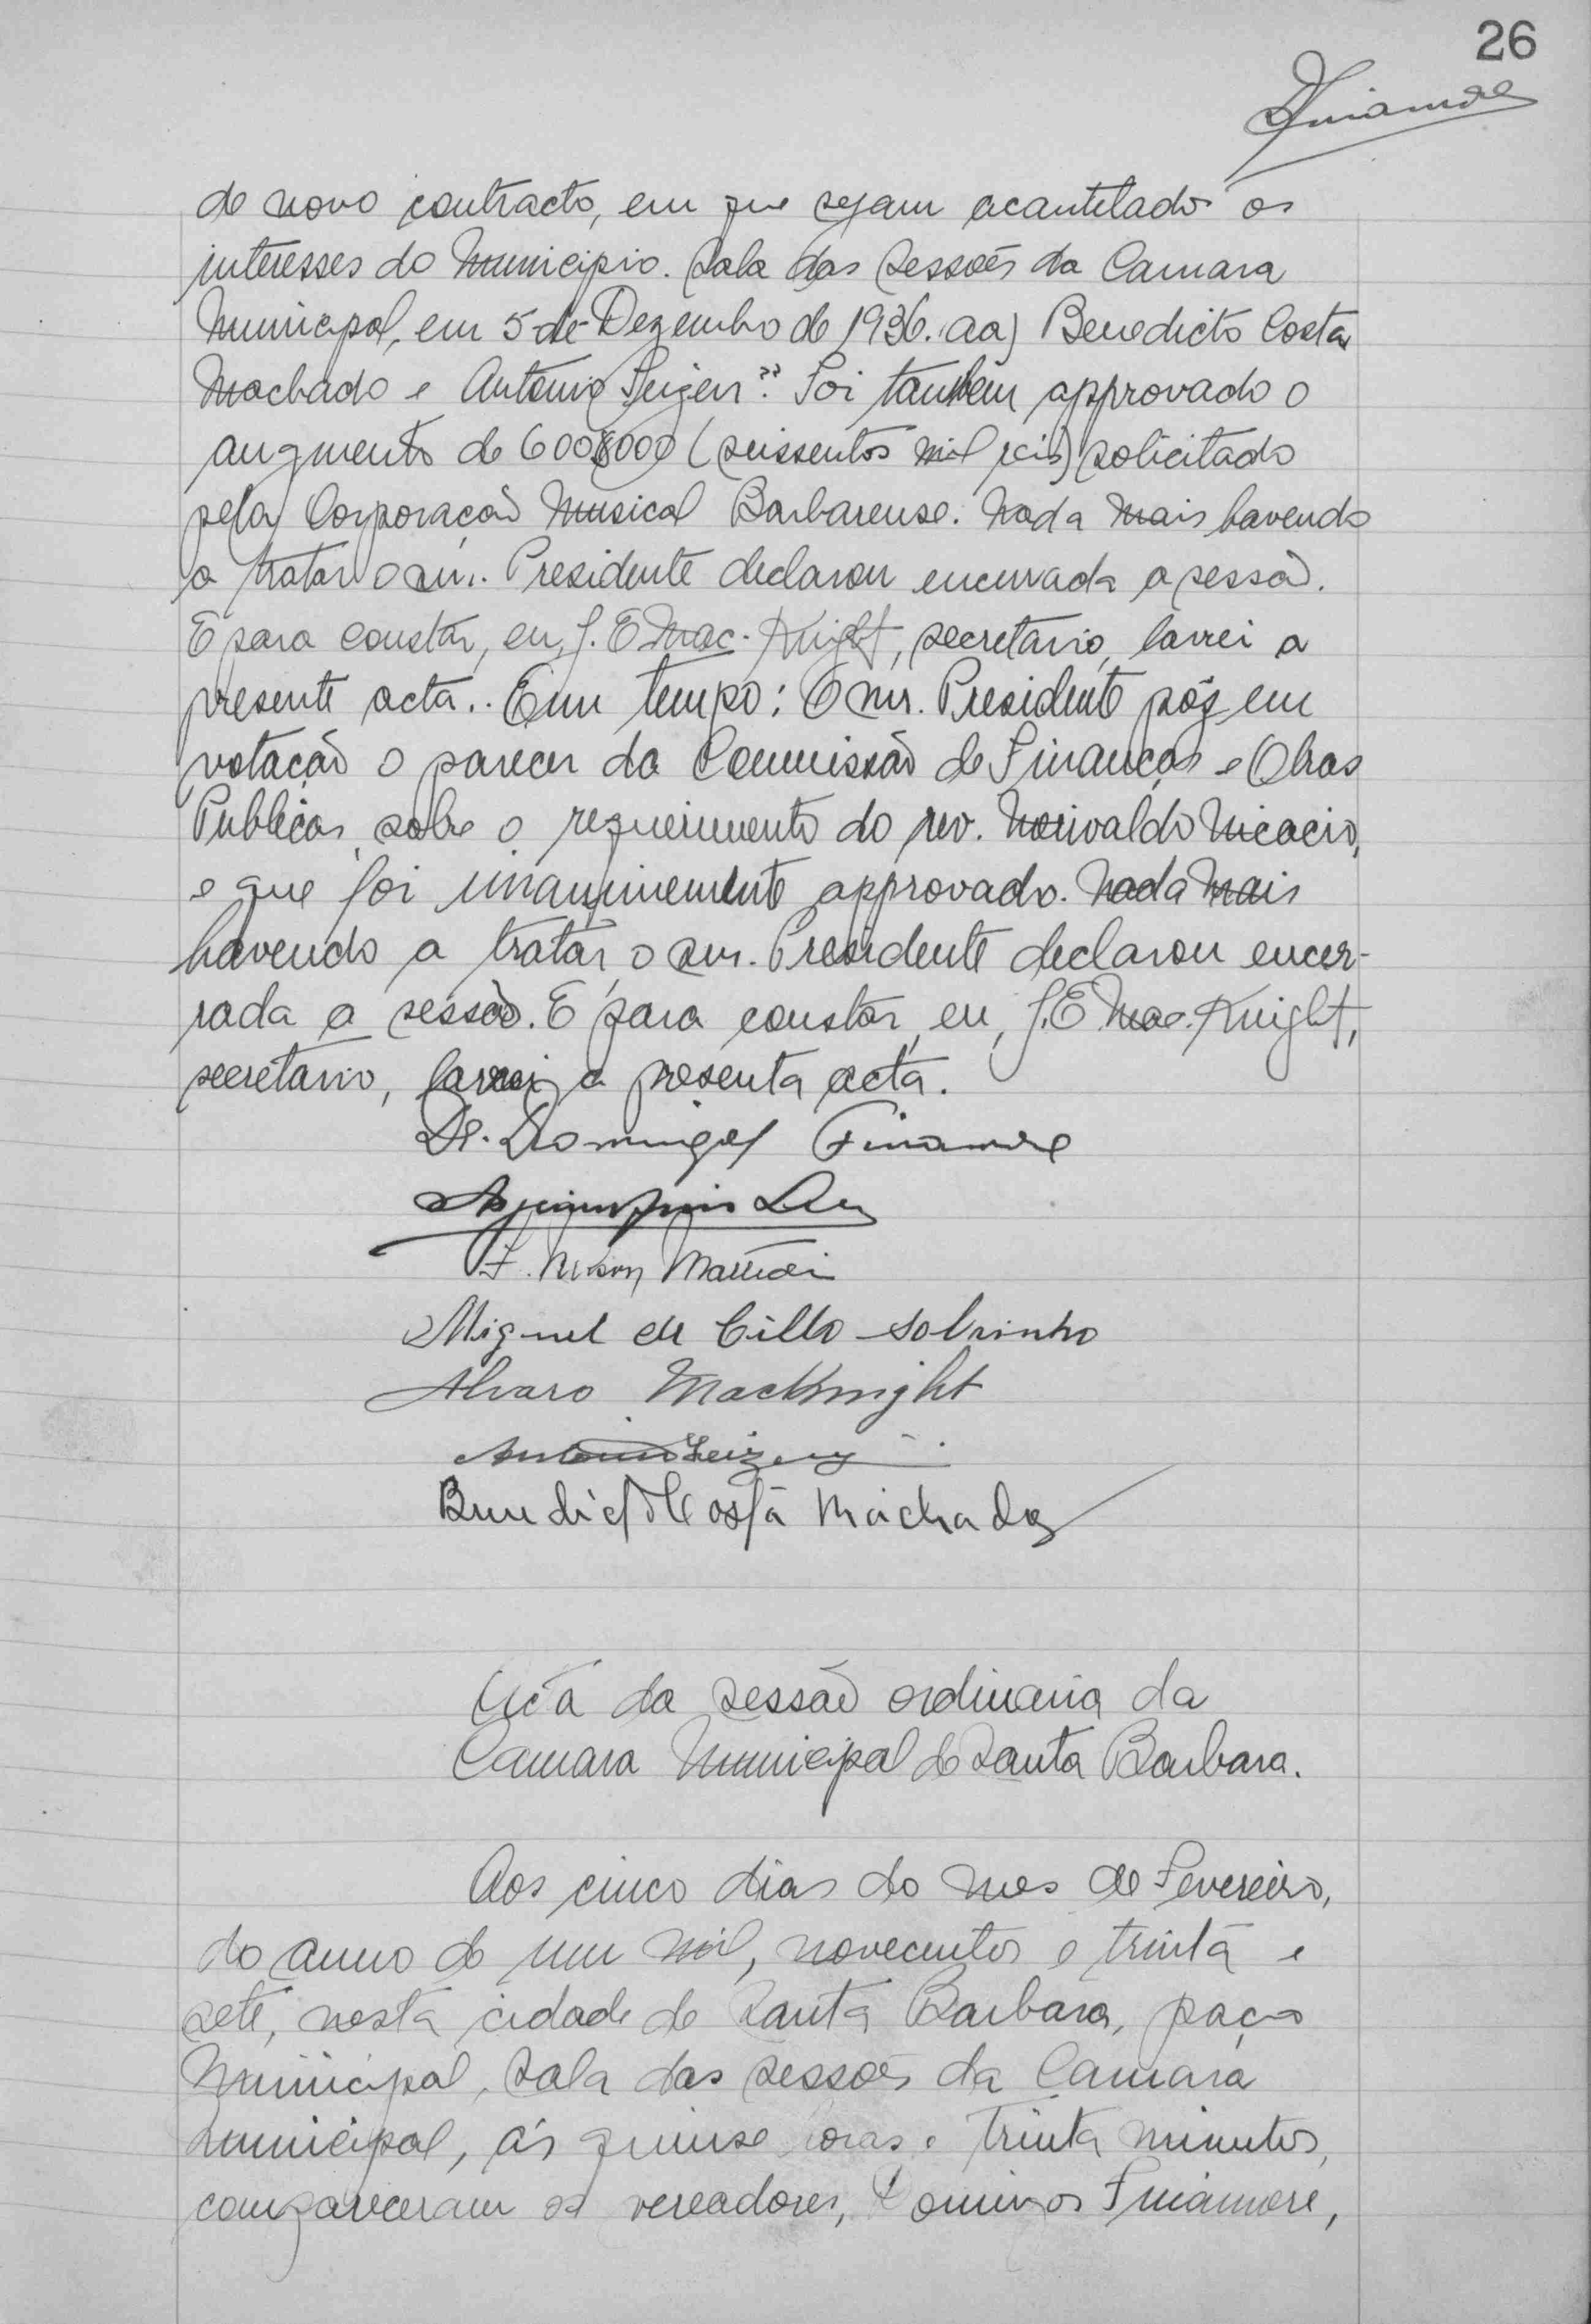 26
Finamore
de novo contracto, em que sejam acautelados os
interesses do Municipio. Sala das Sessões da Camara
Municipal, em 5 de Dezembro de 1936. (aa) Benedicto Costa
Machado e Antonio Seizen". Foi tambem approvado o
augmento de 600$000 (seissentos mil reis) solicitado
pela Corporação Musical Barbarense. Nada mais havendo
a tratar o snr. Presidente declarou encerrada a sessão.
E para constar, eu, J. E Mac-Knight, secretario, lavrei a
presente acta.. Em tempo: O snr. Presidente pôz em
votação o parecer da Commissão de Finanças e Obras
Publicas sobre o requerimento do rev. Norivaldo Nicacio,
e que foi unanimemente approvado. Nada mais
havendo a tratar, o snr. Presidente declarou encer-
rada a sessão. E para constar, eu, J. E Mac-Knight,
secretario, lavrei a presenta acta.
Dr. Domingos Finamore
F. Nelson
Miguel de Cillo Sobrinho
Alvaro MacKnight
Antonio
Benedicto Costa Machado
Acta da sessão ordinaria da
Camara Municipal de Santa Barbara.
Aos cinco dias do mes de Fevereiro,
do anno de um mil, novecentos e trinta e
sete, nesta cidade de Santa Barbara, paço
Municipal, sala das sessões da Camara
Municipal, ás quinse horas e trinta minutos,
compareceram os vereadores, Domingos Finamore,